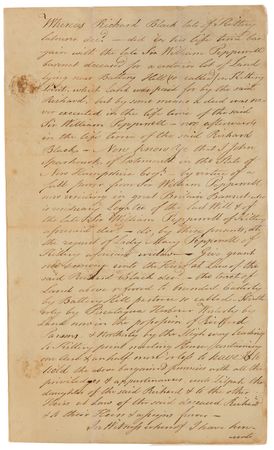 Whereas Richard Black late of Kittery
labourer decd — did in his life time bar
gain with the late Sir William Pepperrell
Baronet deceased for a certain lot of Land
lying near Battery Hill so called in Kittery
which land was paid for by the said
Richard, but by some means a deed was ne
ver executed in the life time of the said
Sir William Pepperrell — nor afterwards
in the life time of the said Richard
Black — Now know Ye that I John
Sparhawk of Portsmouth in the State of
New Hampshire Esqr. by virtue of a
full power from Sir William Pepperrell
now residing in great Britain Baronet who
is residuary legatee of the last Will &c of
the late Sir William Pepperrell of Kittery
aforesaid decd — do, by these presents, at
the request of Lady Mary Pepperrell of
Kittery aforesaid widow — Give grant
and convey unto the Heirs at Law of the
said Richard Black — the Parcel of
Land above refered to bounded easterly
by Battery Hill pasture so called South
erly by Piscataqua Harbour Westerly by
Land now in the possession of
Parsons & Northerly by the Road leading
to Kittery point meeting House containing
one Acre & an half more or less to have & to
hold the above bargained premises with all the
priviledges & appurtenances unto
daughter of the said Richard & to the other
Heirs at Law of the said deceased Richard
& to their Heirs & assigns forever —
In Witness whereof I have here
unto